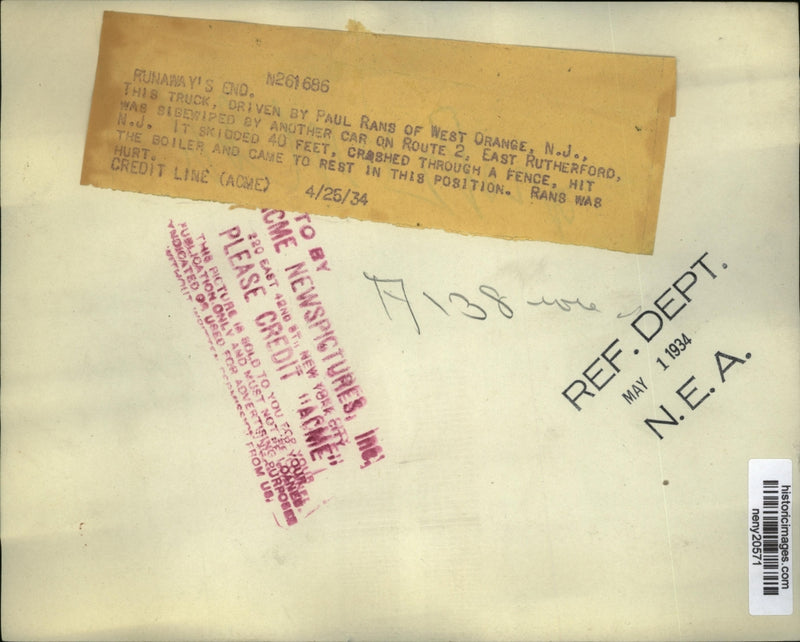 RUNAWAY'S END. N261686
THIS TRUCK, DRIVEN BY PAUL RANS OF WEST ORANGE, N.J.,
WAS SIDEWIPED BY ANOTHER CAR ON ROUTE 2, EAST RUTHERFORD,
N.J. IT SKIDDED 40 FEET, CRASHED THROUGH A FENCE, HIT
THE BOILER AND CAME TO REST IN THIS POSITION. RANS WAS
HURT.
CREDIT LINE (ACME) 4/25/34
TO BY
ACME NEWSPICTURES, INC.
220 EAST 42ND ST., NEW YORK CITY
PLEASE CREDIT "ACME"
THIS PICTURE IS SOLD TO YOU FOR YOUR
PUBLICATION ONLY AND MUST NOT BE LOANED,
SYNDICATED OR USED FOR ADVERTISING PURPOSES
WITHOUT PERMISSION FROM US.
138
REF. DEPT.
MAY 1 1934
N.E.A.
historicimages.com
neny20571